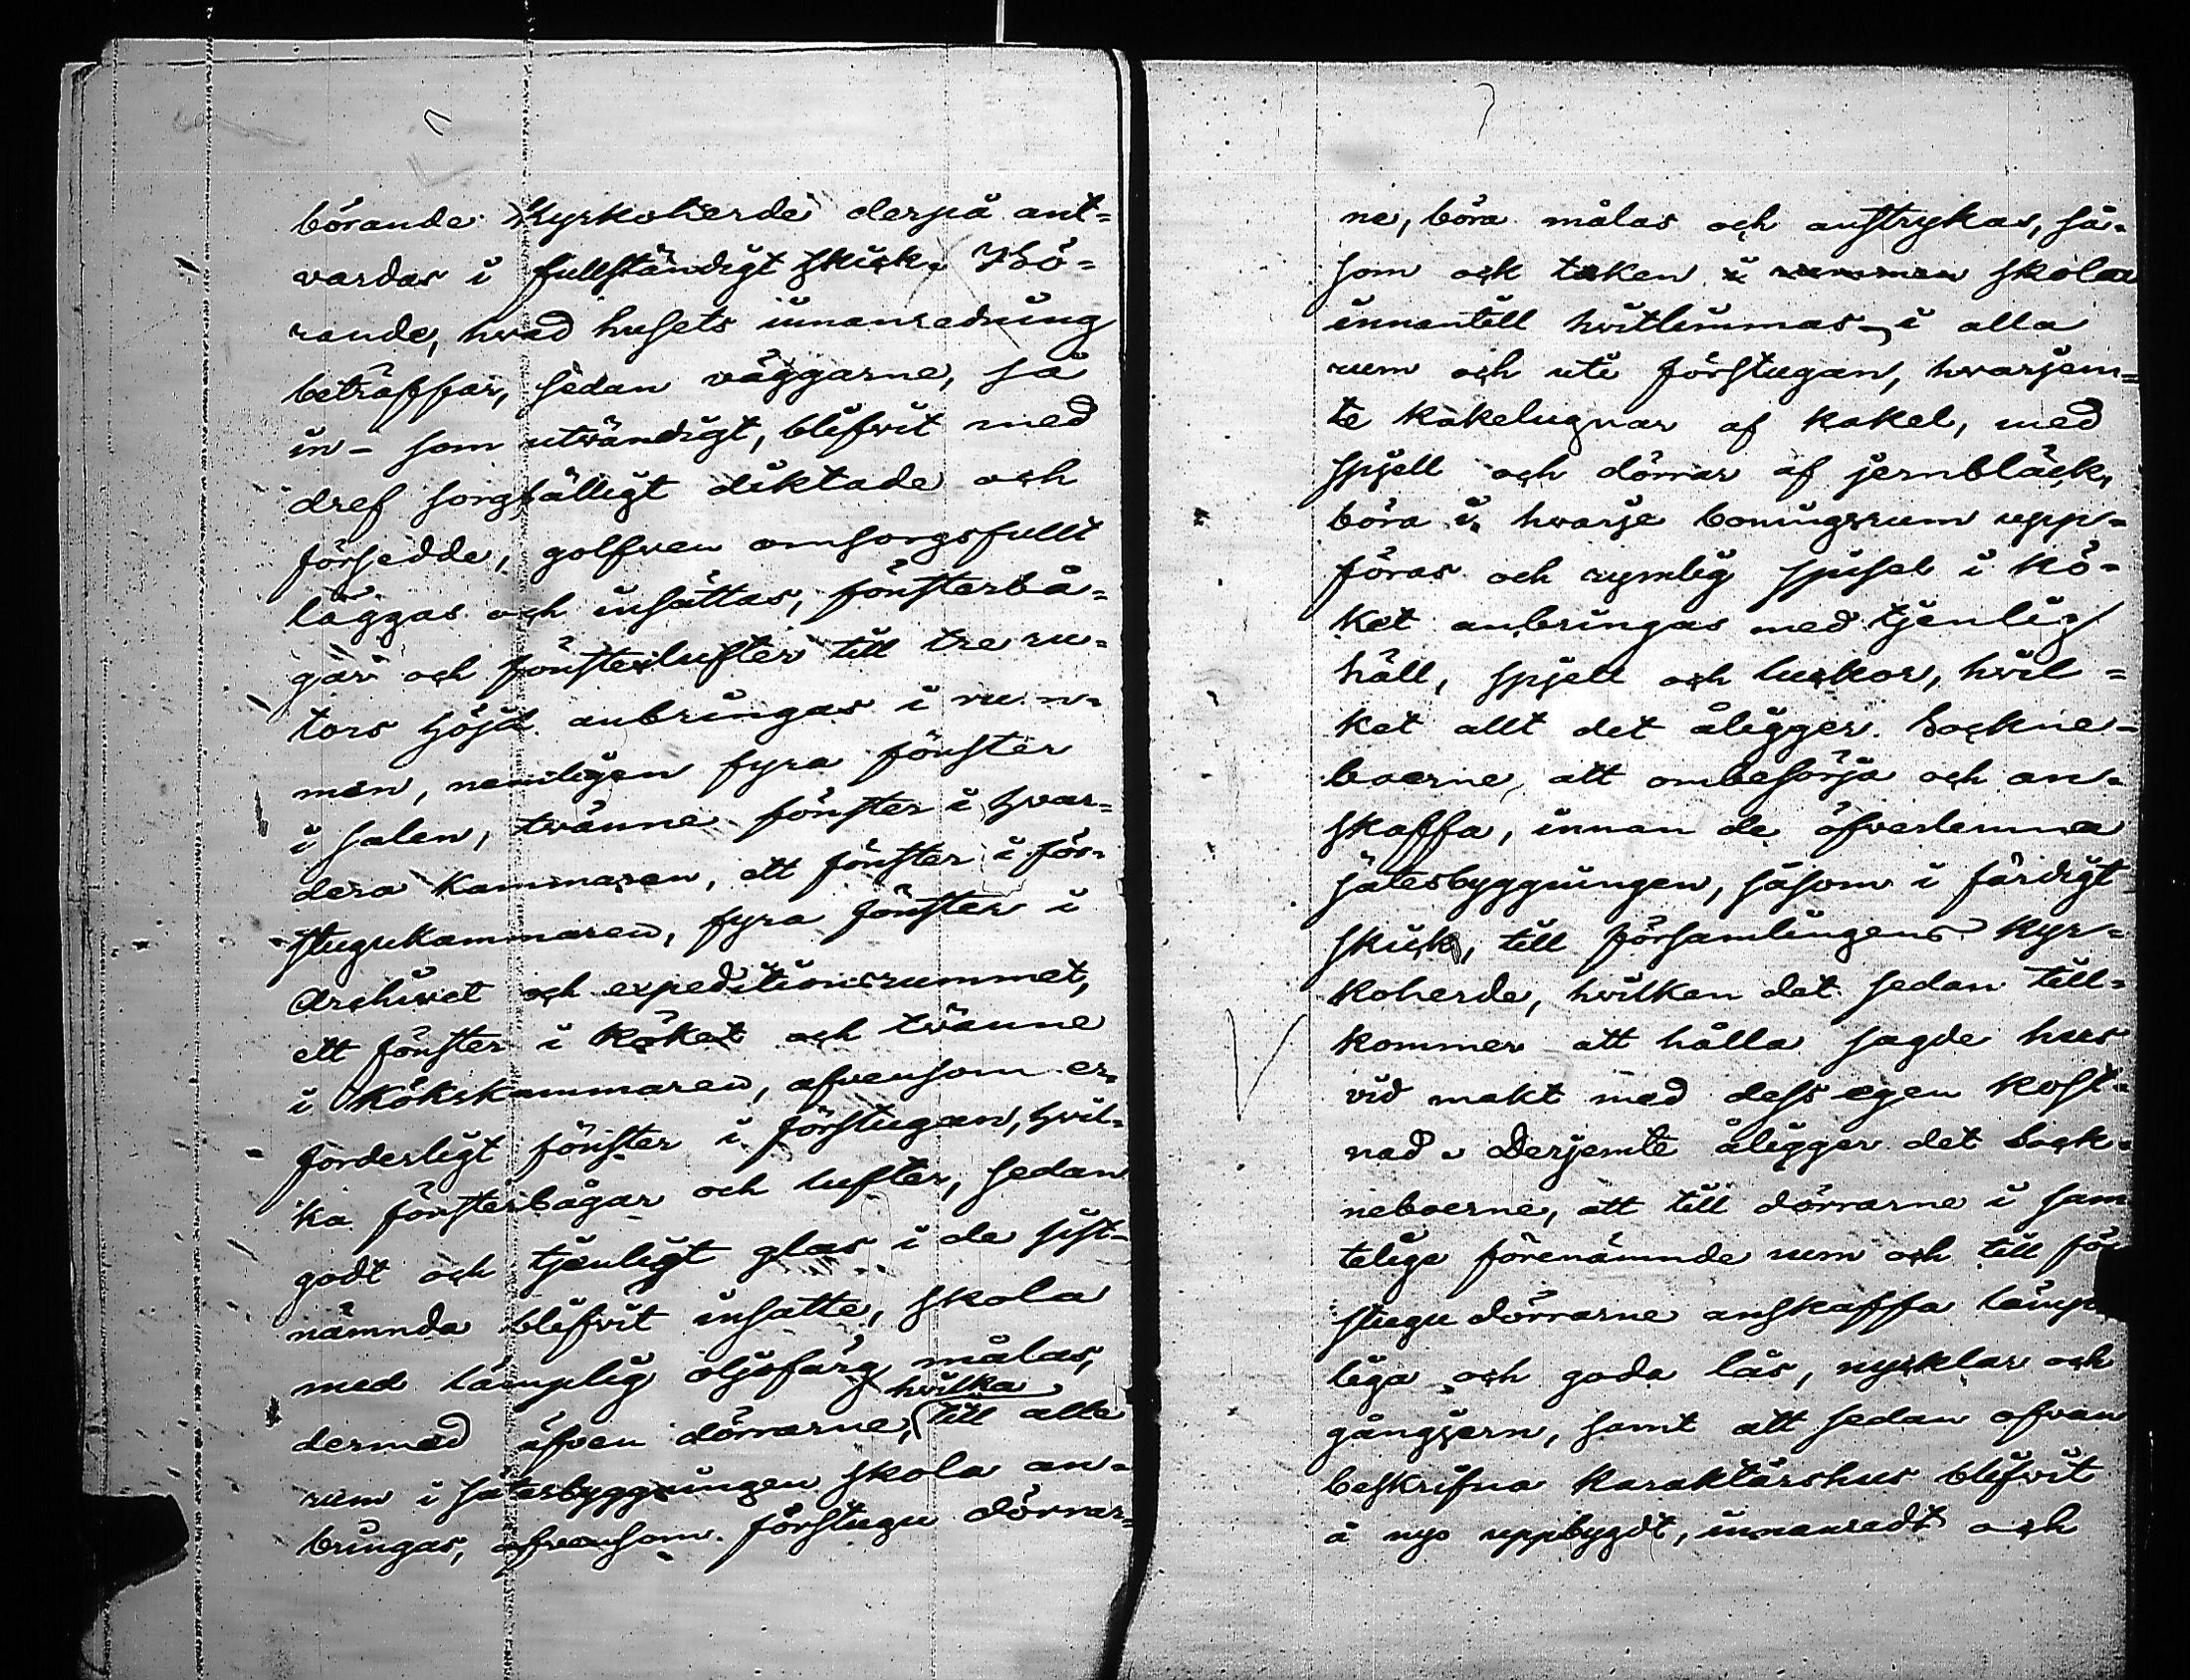 börande Kyrkoherde derpå ant-
vardas i fullständigt skick. Hö-
rande, hvad husets innanredning
beträffar, sedan väggarne, så
in- som utvändigt, blifvit med
dref sorgfälligt diktade och
försedde, golfven omsorgsfullt
läggas och insättas, fönsterbå-
gar och fönsterlufter till tre ru-
tors höjd anbringas i rum-
men, nemligen fyra fönster
i salen, tvänne fönster i hvar-
dera kammaren, ett fönster i för-
stugukammaren, fyra fönster i
Archivet och expeditionsrummet,
ett fönster i köket och tvänne
i kökskammaren, äfvensom er-
forderligt fönster i förstugan, hvil-
ka fönsterbågar och lufter, sedan
godt och tjenligt glas i de sist-
nämnda blifvit insatte, skola
med lämplig oljefärg målas,
hvilka
dermed äfven dörrarne, till alla
rum i sätesbyggningen skola an-
bringas, äfvensom förstugu dörrar-
ne, böra målas och anstrykas, så-
som ock taken i rummen skola
innantill hvitlimmas i alla
rum och uti förstugan, hvarjem-
te kakelugnar af kakel, med
spjell och dörrar af jernbläck,
böra i hvarje boningsrum upp-
föras och rymlig spisel i kö-
ket anbringas med tjenlig
häll, spjell och luckor, hvil-
ket allt det åligger Sockne-
boerne, att ombesörja och an-
skaffa, innan de öfverlemna
sätesbyggningen, såsom i färdigt
skick, till församlingens Kyr-
koherde, hvilken det sedan till-
kommer att hålla sagde hus
vid makt med dess egen kost-
nad. Derjemte åligger det Sock-
neboerne, att till dörrarne i sam
telige förenämnde rum och till för
stugu dörrarne anskaffa lämp
liga och goda lås, nycklar och
gångjern, samt att sedan ofvan
beskrifna karaktärshus blifvit
å nyo uppbygdt, innanredt och